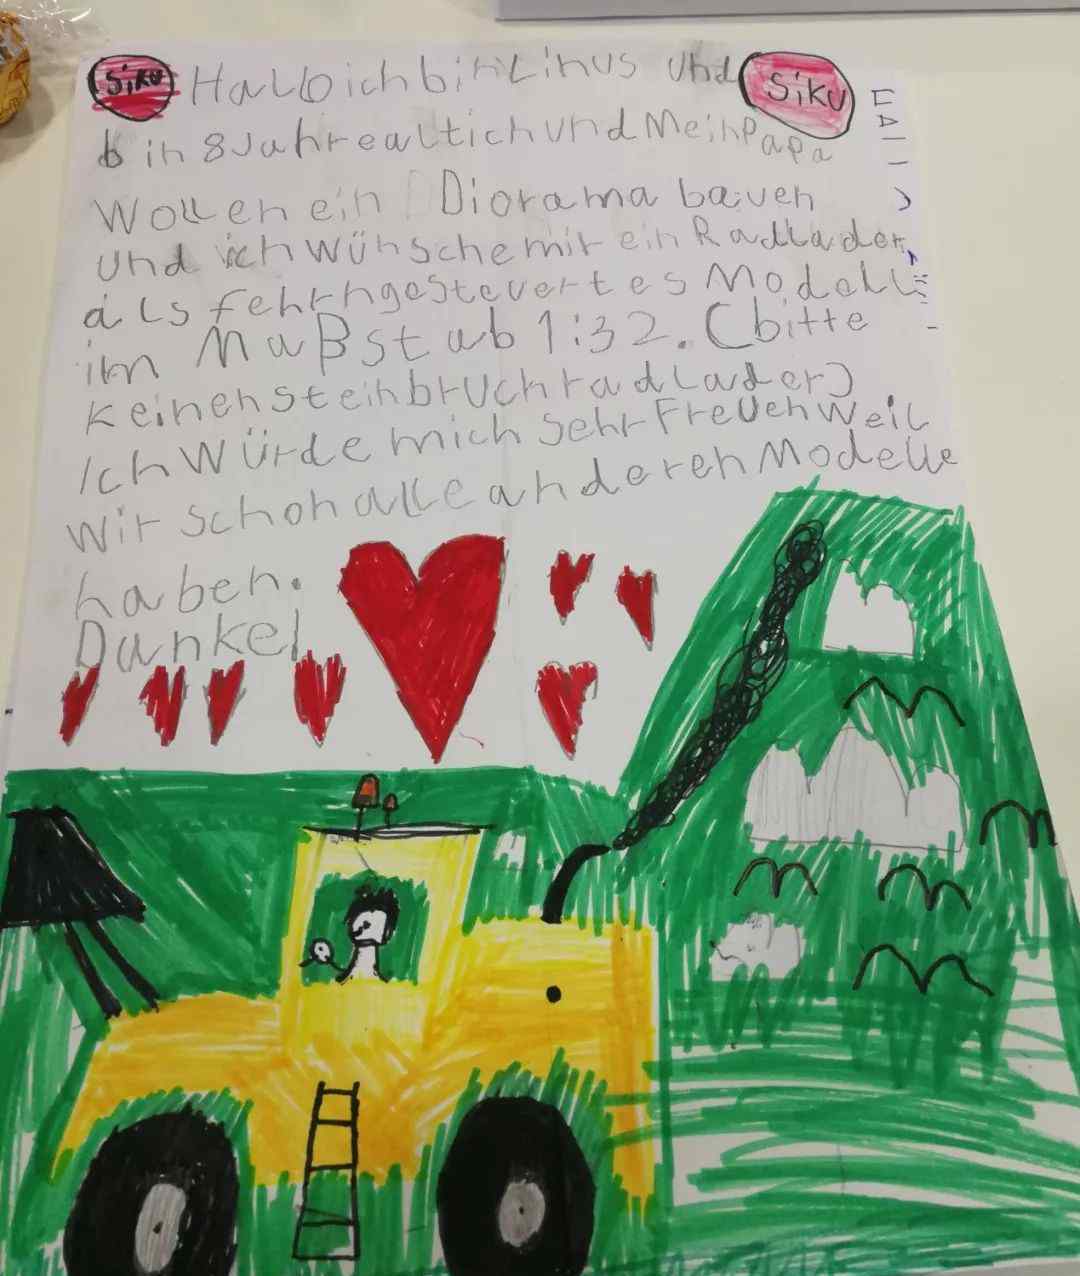 Siku HaLLo ich bin Linus und Siku
bin 8 Jahre alt ich und Mein Papa
Wollen ein Diorama bauen
und ich Wünsche mir ein RadLader,
als fehrngesteuertes Modell
im Maßstab 1:32. (bitte
keinen steinbruchradLader)
Ich Würde mich sehr Freuen Weil
Wir schon alle anderen Modelle
haben.
Danke!